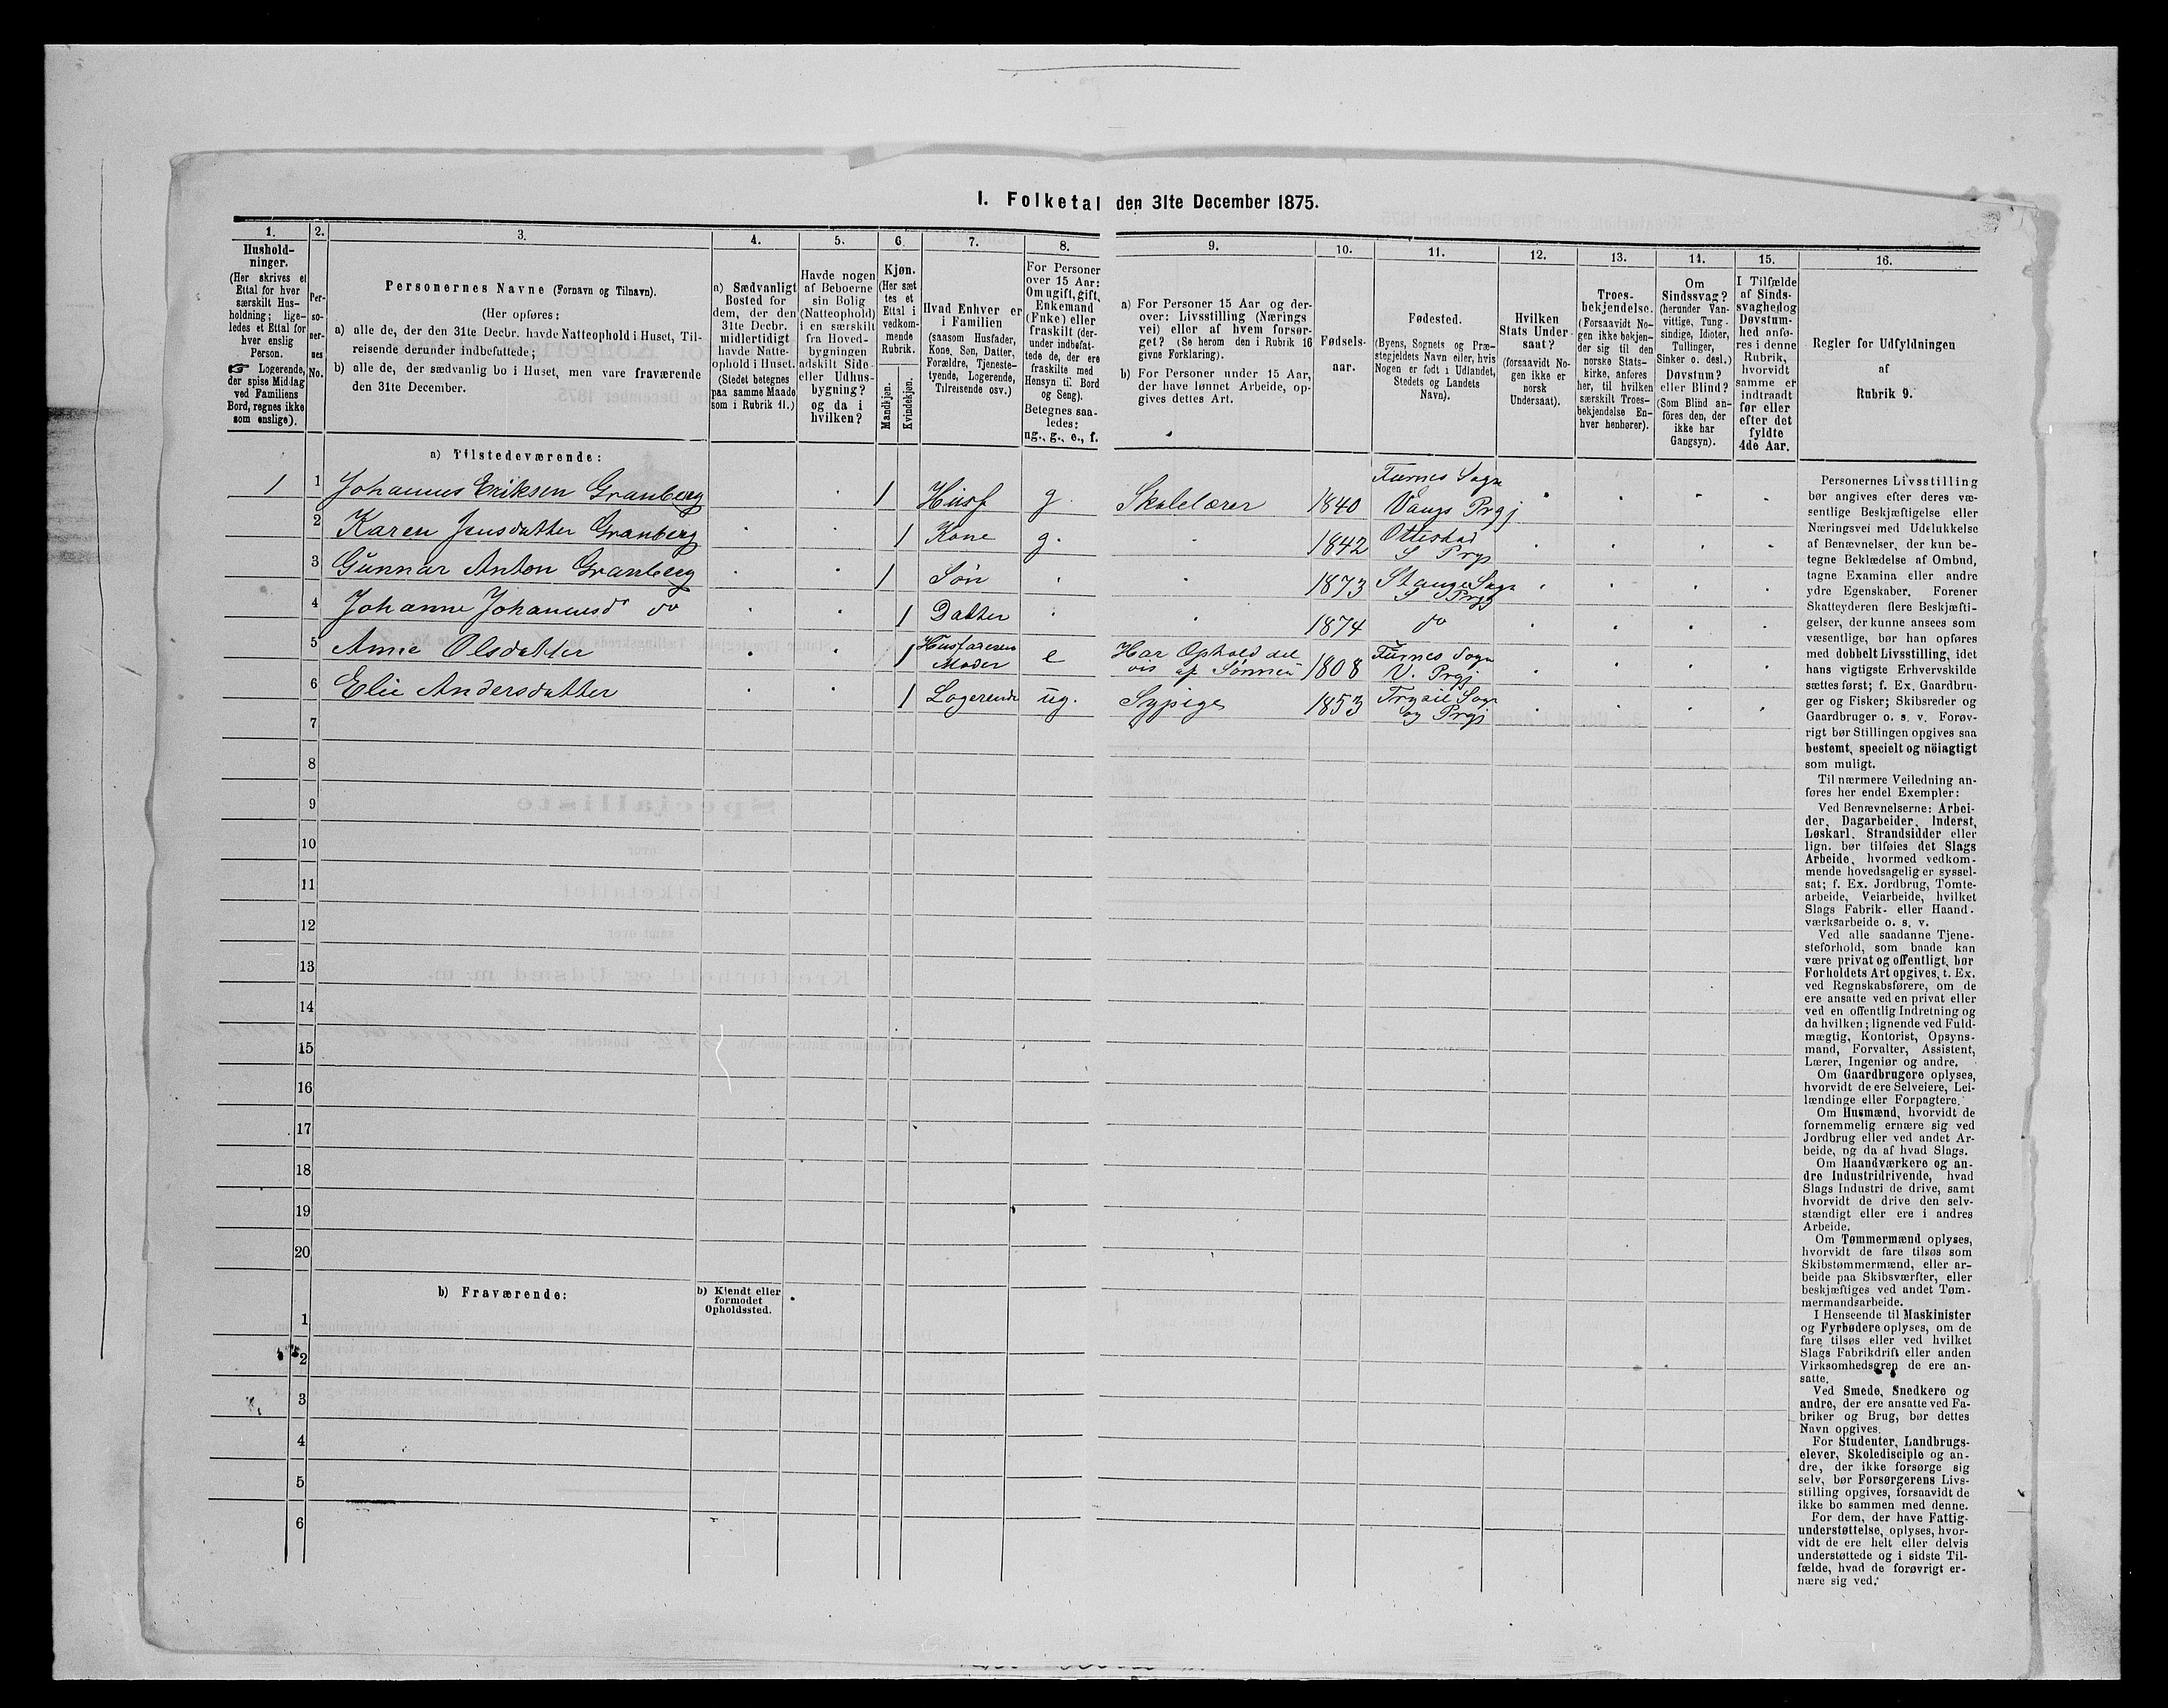 I. Folketal den 31te December 1875.
1.
Hushold-
ninger.
(Her skrives et
Ettal for hver
særskilt Hus-
holdning; lige-
ledes et Ettal for
hver enslig
Person.
☞ Logerende,
der spise Middag
ved Familiens
Bord, regnes ikke
som enslige).
2.
Per-
so-
ner-
nes
No.
3.
Personernes Navne (Fornavn og Tilnavn).
(Her opføres:
a) alle de, der den 31te Decbr. havde Natteophold i Huset, Til-
reisende derunder indbefattede;
b) alle de, der sædvanlig bo i Huset, men vare fraværende
den 31te December.
4.
a) Sædvanligt
Bosted for
dem, der den
31te Decbr.
midlertidigt
havde Natte-
ophold i Huset.
(Stedet betegnes
paa samme Maade
som i Rubrik 11.)
5.
Havde nogen
af Beboerne
sin Bolig
(Natteophold)
i en særskilt
fra Hoved-
bygningen
adskilt Side-
eller Udhus-
bygning?
og da i
hvilken?
6.
Kjøn.
(Her sæt
tes et
Ettal i
vedkom-
mende
Rubrik.
Mandkjøn.
Kvindekjøn.
7.
Hvad Enhver er
i Familien
(saasom Husfader,
Kone, Søn, Datter,
Forældre, Tjeneste-
tyende, Logerende,
Tilreisende osv.)
8.
For Personer
over 15 Aar:
Om ugift, gift,
Enkemand
(Enke) eller
fraskilt (der-
under indbefat-
tede de, der ere
fraskilte med
Hensyn til Bord
og Seng).
Betegnes saa-
ledes:
ug., g., e., f.
9.
a) For Personer 15 Aar og der-
over: Livsstilling (Nærings
vei) eller af hvem forsør-
get? (Se herom den i Rubrik 16
givne Forklaring).
b) For Personer under 15 Aar,
der have lønnet Arbeide, op-
gives dettes Art.
10.
Fødsels-
aar.
11.
Fødested.
(Byens, Sognets og Præ-
stegjeldets Navn eller, hvis
Nogen er født i Udlandet,
Stedets og Landets
Navn).
12.
Hvilken
Stats Under-
saat?
(forsaavidt No-
gen ikke er
norsk
Undersaat).
13.
Troes-
bekjendelse.
(Forsaavidt No-
gen ikke bekjen-
der sig til den
norske Stats-
kirke, anføres
her, til hvilken
særskilt Troes-
bekjendelse En-
hver henhører).
14.
Om
Sindssvag?
(herunder Van-
vittige, Tung-
sindige, Idioter,
Tullinger,
Sinker o. desl.)
Døvstum?
eller Blind?
(Som Blind an-
føres den, der
ikke har
Gangsyn).
15.
I Tilfælde
af Sinds-
svaghed og
Døvstum-
hed anfø-
res i denne
Rubrik,
hvorvidt
samme er
indtraadt
før eller
efter det
fyldte
4de Aar.
16.
Regler for Udfyldningen
af
Rubrik 9.
a) Tilstedeværende:
1 1 Johannes Eriksen Granberg 1 Husf g. Skolelærer 1840 Furnes Sogn
Vangs Prgj
2 Karen Jensdatter Granberg 1 Kone g. 1842 Ottestad
S Prgj
3 Gunnar Anton Granberg 1 Søn 1873 Stange Sogn
S Prgj
4 Johanne Johannesd do 1 Datter 1874 do
5 Anne Olsdatter 1 Husfaderens
Moder e Har Ophold del
vis af Sønnen 1808 Furnes Sogn
V. Prgj
6 Elie Andersdatter 1 Logerende ug. Sypige 1853 Trysil Sogn
og Prgj
7
8
9
10
11
12
13
14
15
16
17
18
19
20
b) Fraværende:
b) Kjendt eller
formodet
Opholdssted.
1
2
3
4
5
6
Personernes Livsstilling
bør angives efter deres væ-
sentlige Beskjæftigelse eller
Næringsvei med Udelukkelse
af Benævnelser, der kun be-
tegne Beklædelse af Ombud,
tagne Examina eller andre
ydre Egenskaber. Forener
Skatteyderen flere Beskjæfti-
gelser, der kunne ansees som
væsentlige, bør han opføres
med dobbelt Livsstilling, idet
hans vigtigste Erhvervskilde
sættes først; f. Ex. Gaardbru-
ger og Fisker; Skibsreder og
Gaardbruger o. s. v. Forøv-
rigt bør Stillingen opgives saa
bestemt, specielt og nöiagtigt
som muligt.
Til nærmere Veiledning an-
føres her endel Exempler:
Ved Benævnelserne: Arbei-
der, Dagarbeider, Inderst,
Løskarl, Strandsidder eller
lign. bør tilføies det Slags
Arbeide, hvormed vedkom-
mende hovedsagelig er syssel-
sat; f. Ex. Jordbrug, Tomte-
arbeide, Veiarbeide, hvilket
Slags Fabrik- eller Haand-
værksarbeide o. s. v.
Ved alle saadanne Tjene-
steforhold, som baade kan
være privat og offentligt, bør
Forholdets Art opgives, t. Ex.
ved Regnskabsførere, om de
ere ansatte ved en privat eller
ved en offentlig Indretning og
da hvilken; lignende ved Fuld-
mægtig, Kontorist, Opsyns-
mand, Forvalter, Assistent,
Lærer, Ingeniør og andre.
Om Gaardbrugere oplyses,
hvorvidt de ere Selveiere, Lei-
lændinge eller Forpagtere.
Om Husmænd, hvorvidt de
fornemmelig ernære sig ved
Jordbrug eller ved andet Ar-
beide, og da af hvad Slags.
Om Haandværkere og an-
dre Industridrivende, hvad
Slags Industri de drive, samt
hvorvidt de drive den selv-
stændigt eller ere i andres
Arbeide.
Om Tømmermænd oplyses,
hvorvidt de fare tilsøs som
Skibstømmermænd, eller ar-
beide paa Skibsværfter, eller
beskjæftiges ved andet Tøm-
mermandsarbeide.
I Henseende til Maskinister
og Fyrbødere oplyses, om de
fare tilsøs eller ved hvilket
Slags Fabrikdrift eller anden
Virksomhedsgren de ere an-
satte.
Ved Smede, Snedkere og
andre, der ere ansatte ved Fa-
briker og Brug, bør dettes
Navn opgives.
For Studenter, Landbrugs-
elever, Skoledisciple og an-
dre, der ikke forsørge sig
selv, bør Forsørgerens Livs-
stilling opgives, forsaavidt de
ikke bo sammen med denne.
For dem, der have Fattig-
understøttelse, oplyses, hvor-
vidt de ere helt eller delvis
understøttede og i sidste Til-
fælde, hvad de forøvrigt er-
nære sig ved.